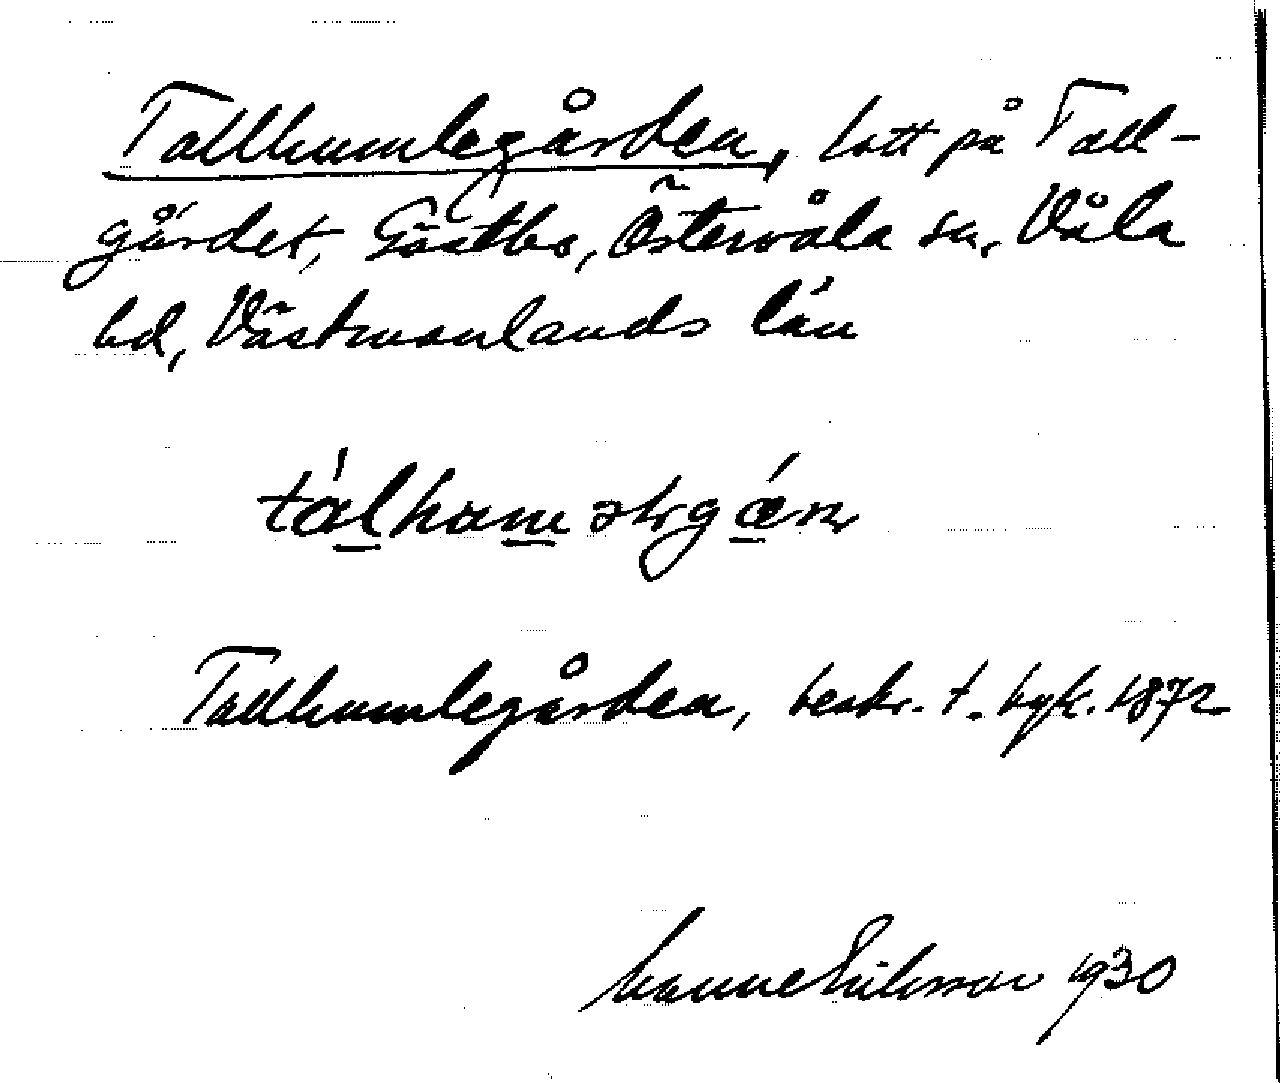 Tallhumlegården, lott på Tall-
gärdet, Gästbo, Östervåla sn, Våla
hd, Västmanlands län
Tallhumlegården, beskr. t. hgk. 1872
Manne Eriksson 1930